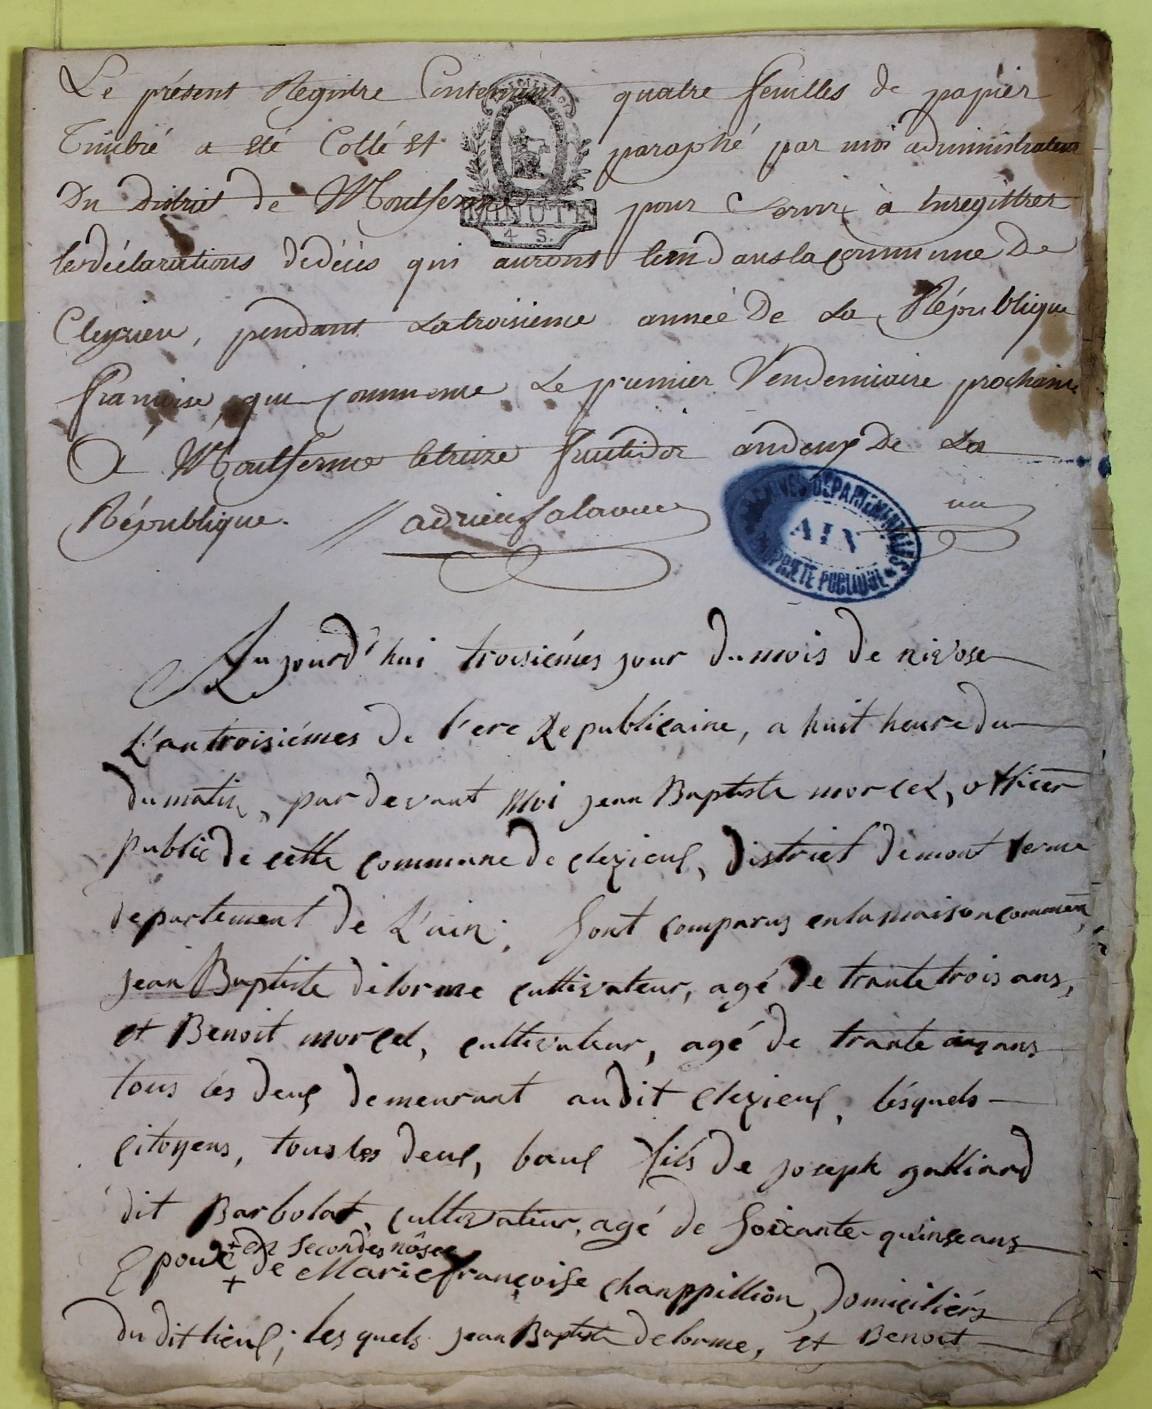 Le présent Registre Contenant quatre feuilles de papier
Timbré a eté Cotté et paraphé par moi administrateur
Du District de Montferme pour Servir à Enregistrer
les déclarations dédécés qui auront lieu dans la commune De
Cleyzieu, pendant la troisieme année De La République
francoise, qui commence Le premier Vendemiaire prochain
A Montferme le treize fructidor an deux De La
République.
MINUTE
4 S.
ARCHIVES DEPARTEMENTALES
AIN
PROPRIETE PUBLIQUE
Aujourd'hui troisiémes jour du mois de nivose
L'an troisiémes de l'ere Republicaine, a huit heure du
du matin, par devant Moi jean Baptiste morcel, officier
public de cette commune de clezieux, district de mont ferme
departement de L'ain. Sont comparus en la maison commune,
jean Baptiste delorme cultivateur, agé de trante trois ans,
et Benoit morcel, cultivateur, agé de trante ans
tous les deux demeurant audit clezieux, lésquels
citoyens, tous les deux, baux fils de joseph galliard
dit Barbolat, cultivateur, agé de soixante-quinse ans
+ en secondes nôses
Epoux + de Marie françoise chanppillion, domiciliérs
du dit lieux; les quels jean Baptiste delorme, et Benoit